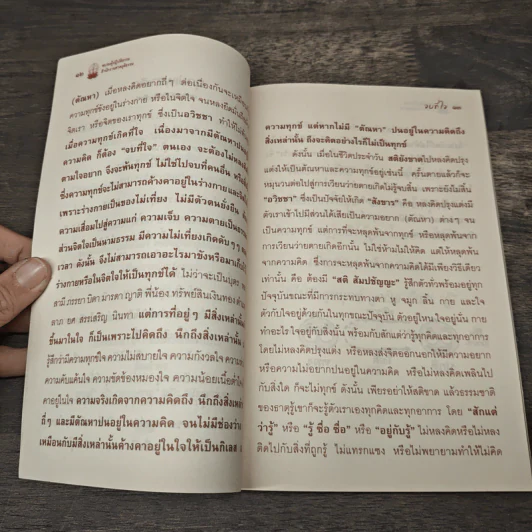 ๑๒
(ตัณหา) เมื่อหลงคิดอยากถี่ๆ ต่อเนื่องกันจะเหมือน
ความทุกข์ฝังอยู่ในร่างกาย หรือในจิตใจ จนหลงยึดมั่น
จิตเรา หรือจิตของเราทุกข์ นี้คือ อวิชชา ทำให้
เมื่อความทุกข์เกิดที่ใจ เนื่องมาจากมีตัณหา
ความคิด ก็ต้อง "จบที่ใจ" ตนเอง จะต้องไม่หลง
ตามใจอยาก จึงจะพ้นทุกข์ ไม่ใช่ไปจบที่คนอื่น หรือ
ซึ่งความทุกข์จะไม่สามารถค้างคาอยู่ในร่างกายและ
เพราะร่างกายเป็นของไม่เที่ยง ไม่มีตัวตนยั่งยืน
ความเสื่อมไปสู่ความแก่ ความเจ็บ ความตายเป็น
ส่วนจิตใจเป็นนามธรรม มีความไม่เที่ยงเกิดดับๆ
เวลา ดังนั้น จึงไม่สามารถเอาอะไรมาขังหรือมา
ร่างกายหรือในจิตใจให้เป็นทุกข์ได้ ไม่ว่าจะเป็นบุตร
สามี ภรรยา บิดา มารดา ญาติ พี่น้อง ทรัพย์สินเงินทอง
ลาภ ยศ สรรเสริญ นินทา แต่การที่อยู่ๆ มีสิ่งเหล่านั้น
ขึ้นมาในใจ ก็เป็นเพราะไปคิดถึง นึกถึงสิ่งเหล่านั้น
รู้สึกว่ามีความทุกข์ใจ ความไม่สบายใจ ความกังวลใจ
ความคับแค้นใจ ความขัดข้องหมองใจ ความน้อยเนื้อต่ำใจ
คาอยู่ในใจ ความจริงเกิดจากความคิดถึง นึกถึงสิ่งเหล่านั้น
ถี่ๆ และมีตัณหาปนอยู่ในความคิด จนไม่มีช่องว่าง
เหมือนกับมีสิ่งเหล่านั้นค้างคาอยู่ในใจให้เป็นกิเลส
จบที่ใจ ๑๓
ความทุกข์ แต่หากไม่มี "ตัณหา" ปนอยู่ในความคิดถึง
สิ่งเหล่านั้น ถึงจะคิดอย่างไรก็ไม่เป็นทุกข์
ดังนั้น เมื่อในชีวิตประจำวัน สติยังขาดไปหลงคิดปรุง
แต่งให้เป็นตัณหาและความทุกข์อยู่เช่นนี้ ครั้นตายแล้วก็จะ
หมุนวนต่อไปสู่การเวียนว่ายตายเกิดไม่รู้จบสิ้น เพราะยังไม่สิ้น
"อวิชชา" ซึ่งเป็นปัจจัยให้เกิด "สังขาร" คือ หลงคิดปรุงแต่งมี
ตัวเราเข้าไปมีส่วนได้เสียเป็นความอยาก (ตัณหา) ต่างๆ จน
เป็นความทุกข์ แต่การที่จะหลุดพ้นจากทุกข์ หรือหลุดพ้นจาก
การเวียนว่ายตายเกิดอีกนั้น ไม่ใช่ห้ามไม่ให้คิด แต่ให้หลุดพ้น
จากความคิด ซึ่งการจะหลุดพ้นจากความคิดได้มีเพียงวิธีเดียว
เท่านั้น คือ ต้องมี "สติ สัมปชัญญะ" รู้สึกตัวทั่วพร้อมอยู่ทุก
ปัจจุบันขณะที่มีการกระทบทางตา หู จมูก ลิ้น กาย และใจ
ตัวกับใจอยู่ด้วยกันในทุกขณะปัจจุบัน ตัวอยู่ไหนใจอยู่นั่น กาย
ทำอะไร ใจอยู่กับสิ่งนั้น พร้อมกับสักแต่ว่ารู้ทุกคิดและทุกอาการ
โดยไม่หลงคิดปรุงแต่ง หรือหลงส่งจิตออกนอกให้มีความอยาก
หรือความไม่อยากปนอยู่ในความคิด หรือไม่หลงคิดเพลินไป
กับสิ่งใด ก็จะไม่ทุกข์ ดังนั้น เพียรอย่าให้สติขาด แล้วธรรมชาติ
ของธาตุรู้เขาก็จะรู้ตัวเราเองทุกคิดและทุกอาการ โดย "สักแต่
ว่ารู้" หรือ "รู้ ซื่อ ซื่อ" หรือ "อยู่กับรู้" ไม่หลงคิดหรือไม่หลง
คิดไปกับสิ่งที่ถูกรู้ ไม่แทรกแซง หรือไม่พยายามทำให้ไม่คิด